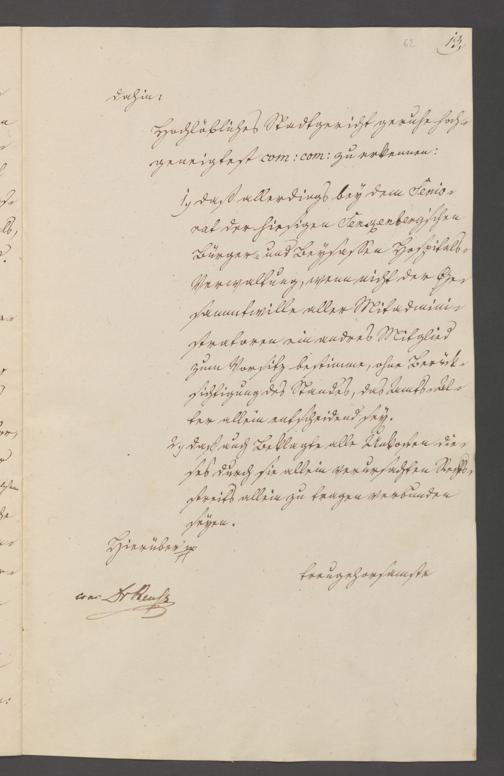 62
13,
dahin:
Hochlöbliches Stadtgericht geruhe hoch-
geneigtest com: com: zu erkennen:
1, daß allerdings bey dem Senio-
rat der hiesigen Senkenbergschen
Bürger- und Beysassen Hospitals-
Verwaltung, wenn nicht der Ge-
sammtwille aller Mitadmini-
stratoren ein andres Mitglied
zum Vorsitz bestimme, ohne Berück-
sichtigung des Standes, das Amts-Al-
ter allein entscheidend sey.
2, daß auch Beklagte alle Unkosten die-
ses durch sie allein verursachten Rechts-
streits allein zu tragen verbunden
seyen.
Hierüber
treugehorsamste
Dr Reuß